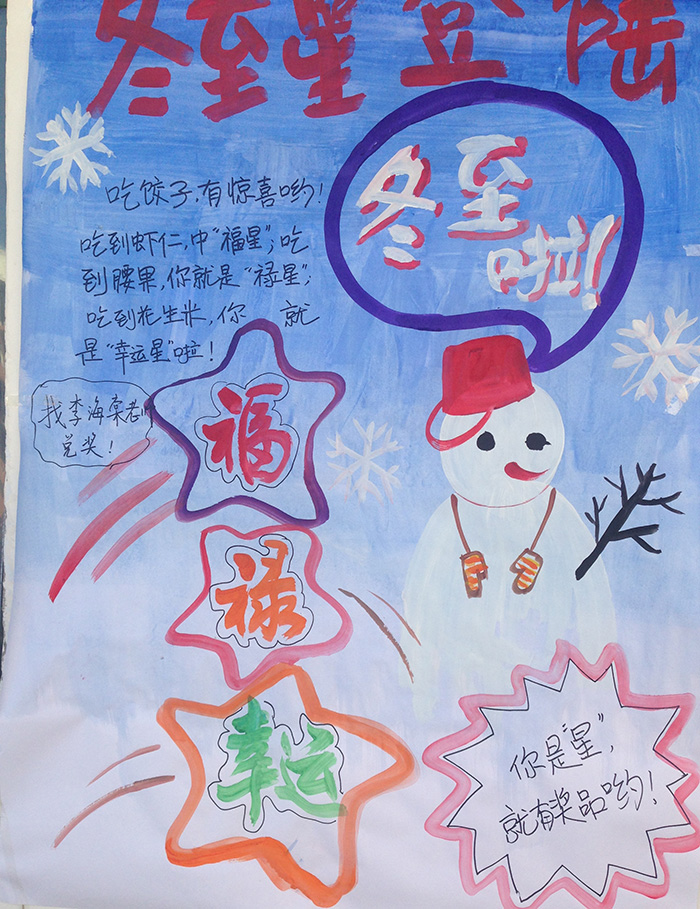 冬至星登陆
冬至
啦!
吃饺子,有惊喜哟!
吃到虾仁,中“福星”;吃
到腰果,你就是“禄星”;
吃到花生米,你 就
是“幸运星”啦!
找李海荣老师
兑奖!
福
禄
幸运
你是“星”,
就有奖品哟!